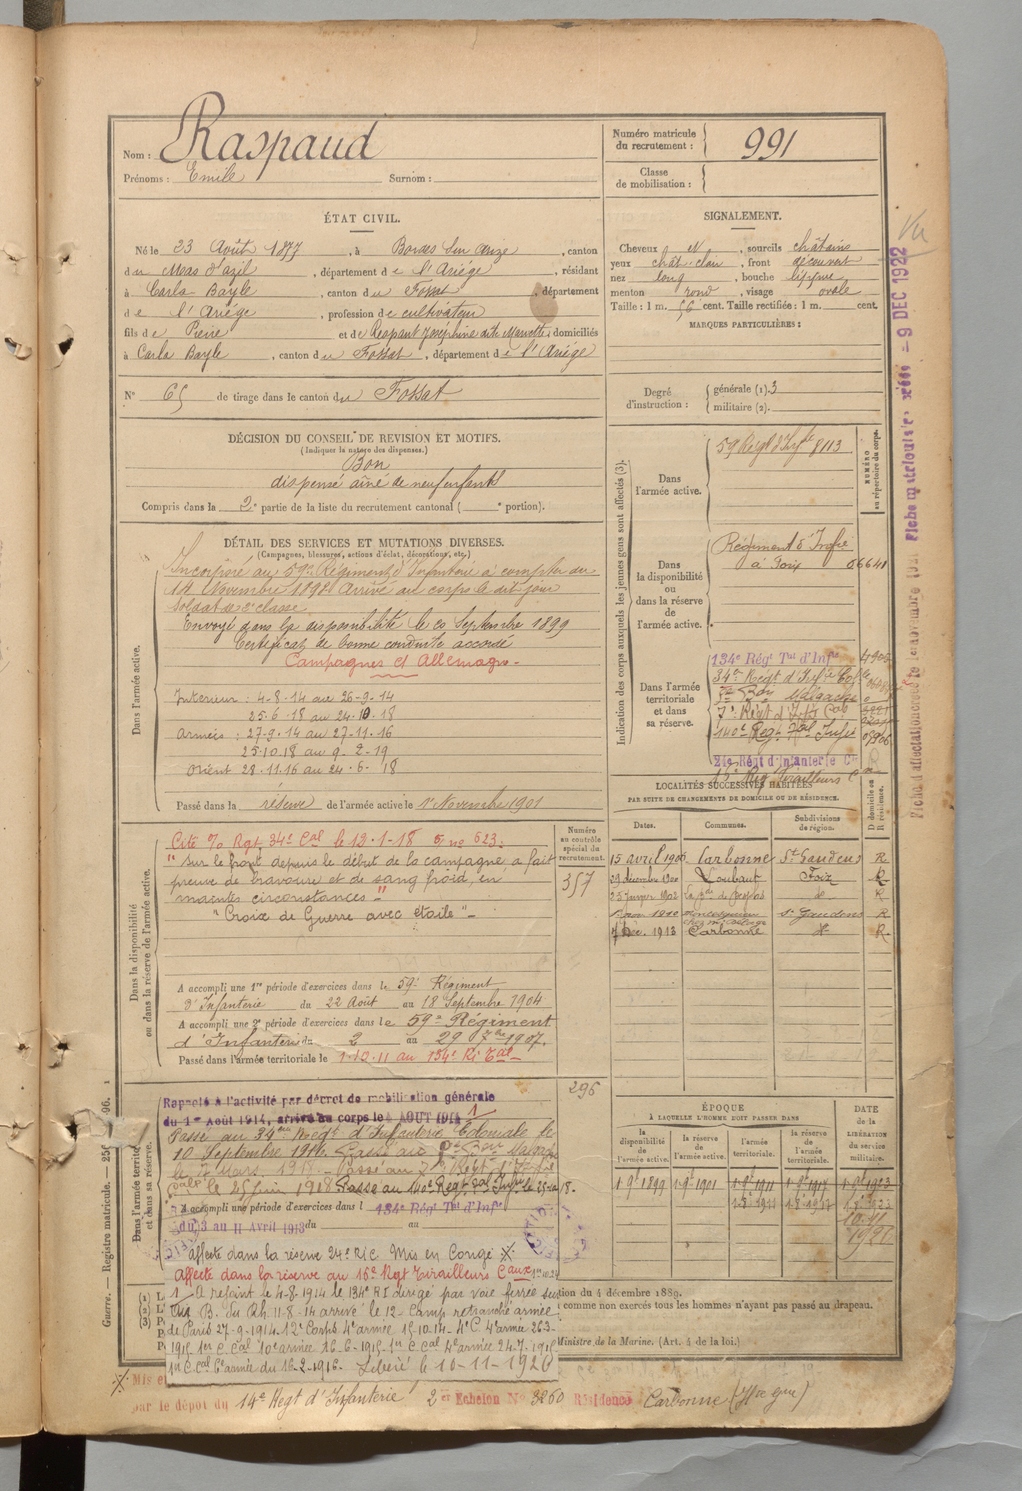 Nom : Raspaud
Prénoms : Emile Surnom :
Numéro matricule du recrutement : 991
Classe de mobilisation :
ÉTAT CIVIL.
Né le 23 Août 1877, à Bordes sur Arize, canton
du Mas d'azil, département de l'Ariége, résidant
à Carla Bayle, canton du Fossat, département
de l'Ariége, profession de cultivateur
fils de Pierre et de Raspaut Joséphine dite Mariette, domiciliés
à Carla Bayle, canton du Fossat, département de l'Ariége
N° 65 de tirage dans le canton du Fossat
SIGNALEMENT.
Cheveux N, sourcils châtains
yeux chât. clair, front découvert
nez long, bouche
menton rond, visage ovale
Taille : 1 m. 56 cent. Taille rectifiée : 1 m. cent.
MARQUES PARTICULIÈRES :
Degré d'instruction : générale (1). 3
militaire (2).
Vu
9 DEC 1922
DÉCISION DU CONSEIL DE REVISION ET MOTIFS.
(Indiquer la nature des dispenses.)
Bon
dispensé aîné de neuf enfants
Compris dans la 2e partie de la liste du recrutement cantonal ( e portion).
DÉTAIL DES SERVICES ET MUTATIONS DIVERSES.
(Campagnes, blessures, actions d'éclat, décorations, etc.)
Dans l'armée active.
Incorporé au 59e Régiment d'Infanterie à compter du
14 Novembre 1898 Arrivé au corps le dit jour
soldat de 2e classe
Envoyé dans la disponibilité le 20 Septembre 1899
Certificat de bonne conduite accordé
Campagnes et Allemagne -
Interieur : 4-8-14 au 26-9-14
25-6-18 au 24-10-18
Armées : 27-9-14 au 27-11-16
25-10-18 au 9-2-19
Orient 28-11-16 au 24-6-18
Passé dans la réserve de l'armée active le 1er Novembre 1901
Indication des corps auxquels les jeunes gens sont affectés (3).
NUMÉRO au répertoire du corps.
Dans l'armée active.
59 Régt d'Infie 8113
Dans la disponibilité ou dans la réserve de l'armée active.
Régiment d'Infie
à Foix 06641
Dans l'armée territoriale et dans sa réserve.
134e Régt Tal d'Infie
34e Regt d'Infie Colle
Bon Malgache
7e Régt d'Infie Cal
140e Regt Tal Infie
24e Rég t d'Infanterie Cle
Rég Tirailleurs
Dans la disponibilité ou dans la réserve de l'armée active.
Cité O/ Rgt 34e Cal le 12-1-18 5 no 623.
" sur le front depuis le début de la campagne a fait
preuve de bravoure et de sang froid, en
maintes circonstances - "
" Croix de Guerre avec étoile " -
Numéro au contrôle spécial du recrutement.
357
A accompli une 1re période d'exercices dans le 59e Régiment
d'Infanterie du 22 Août au 18 Septembre 1904
A accompli une 2e période d'exercices dans le 59e Régiment
d'Infanterie du 2 au 29 7bre 1907.
Passé dans l'armée territoriale le 1-10-11 au 134e RI Tal -
LOCALITÉS SUCCESSIVES HABITÉES
PAR SUITE DE CHANGEMENTS DE DOMICILE OU DE RÉSIDENCE.
Dates. Communes. Subdivisions de région. D domicile ou R résidence.
15 avril 1900 Carbonne St Gaudens R
29 décembre 1900 Loubaut Foix R
25 Janvier 1902 R
1910 St Gaudens R
7 Déc. 1913 Carbonne R
296
Dans l'armée territ et dans sa réserve.
Rappelé à l'activité par décret de mobilisation générale
du 1er Août 1914, arrivé au corps le 4 AOUT 1914 1
Passé au 34me Régt d'Infanterie Coloniale le
10 Septembre 1914. Passé au Bon Malgache
Passé au 7e Régt d'Infie
cale le 25 juin 1918 Passé au 140e Reg. Tal Infie le 25-10-18.
A accompli une période d'exercices dans l 134e Régt Tal d'Infie
du 3 au 11 Avril 1913 du au
Affecté dans la réserve 24e RIC Mis en Congé X.
Affecté dans la réserve au 16e Rgt Tirailleurs Caux
1 A rejoint le 4-8-1914 le 134e RI dirigé par voie ferrée sur
B. du Rh. 11-8-14 arrivé le 12 Camp retranché armée
de Paris 27-9-1914-12e Corps 4e armée 15-10-14-4e C 4e armée 26-3-
1915 1er C. Cal 10e armée 16-6-1915-1er C. Cal 4e armée 24-7-1915
1er C. Cal 6e armée du 16-2-1916. Libéré le 10-11-1926
ÉPOQUE
À LAQUELLE L'HOMME DOIT PASSER DANS
la disponibilité de l'armée active. la réserve de l'armée active. l'armée territoriale. la réserve de l'armée territoriale.
DATE de la LIBÉRATION du service militaire.
1-9bre 1899 1-9bre 1901 1-9bre 1911 1-9bre 1917 1-9bre 1923
tion du 4 décembre 1889.
comme non exercés tous les hommes n'ayant pas passé au drapeau.
Ministre de la Marine. (Art. 4 de la loi.)
X. Mis e
par le dépot du 14e Regt d'Infanterie 2e Echelon N° 3260 Résidence Carbonne (Hte Gne)
Guerre. — Registre matricule.